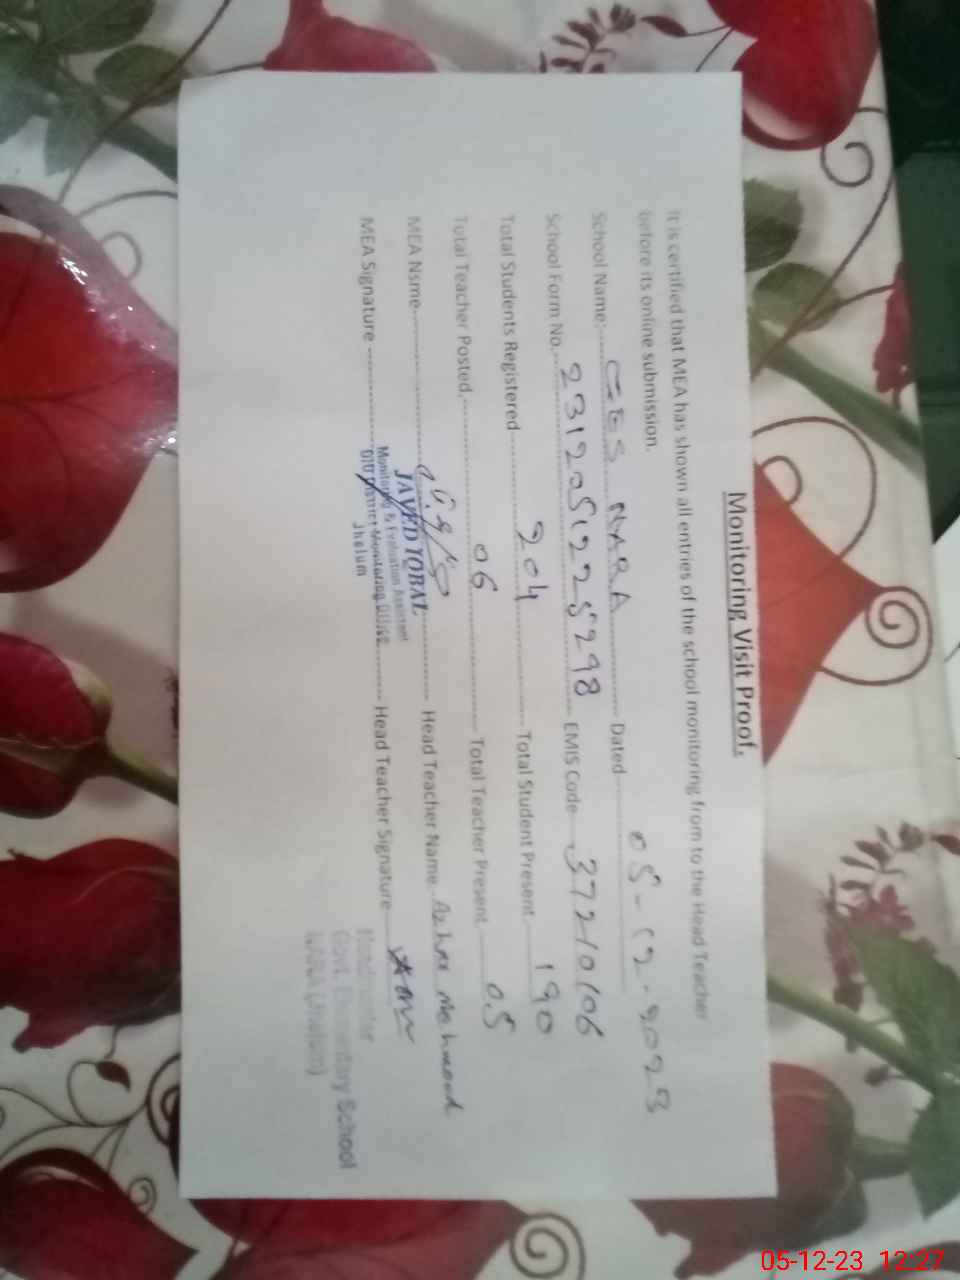 Monitoring Visit Proof.
It is certified that MEA has shown all entries of the school monitoring from to the Head Teacher
before its online submission.
School Name:- GES NARA Dated 05-12-2023
School Form No. 231205122 5298 EMIS Code 37210106
Total Students Registered 204 Total Student Present. 190
Total Teacher Posted. 06 Total Teacher Present 05
MEA Nsme Head Teacher Name. Azhar Mehmood
JAVED IQBAL
Monitoring & Evaluation Assistant
MEA Signature Head Teacher Signature
O/O District Monitoring Officer
Jhelum
Headmaster
Govt. Elementary School
NARA (Jhelum)
05-12-23 12:27